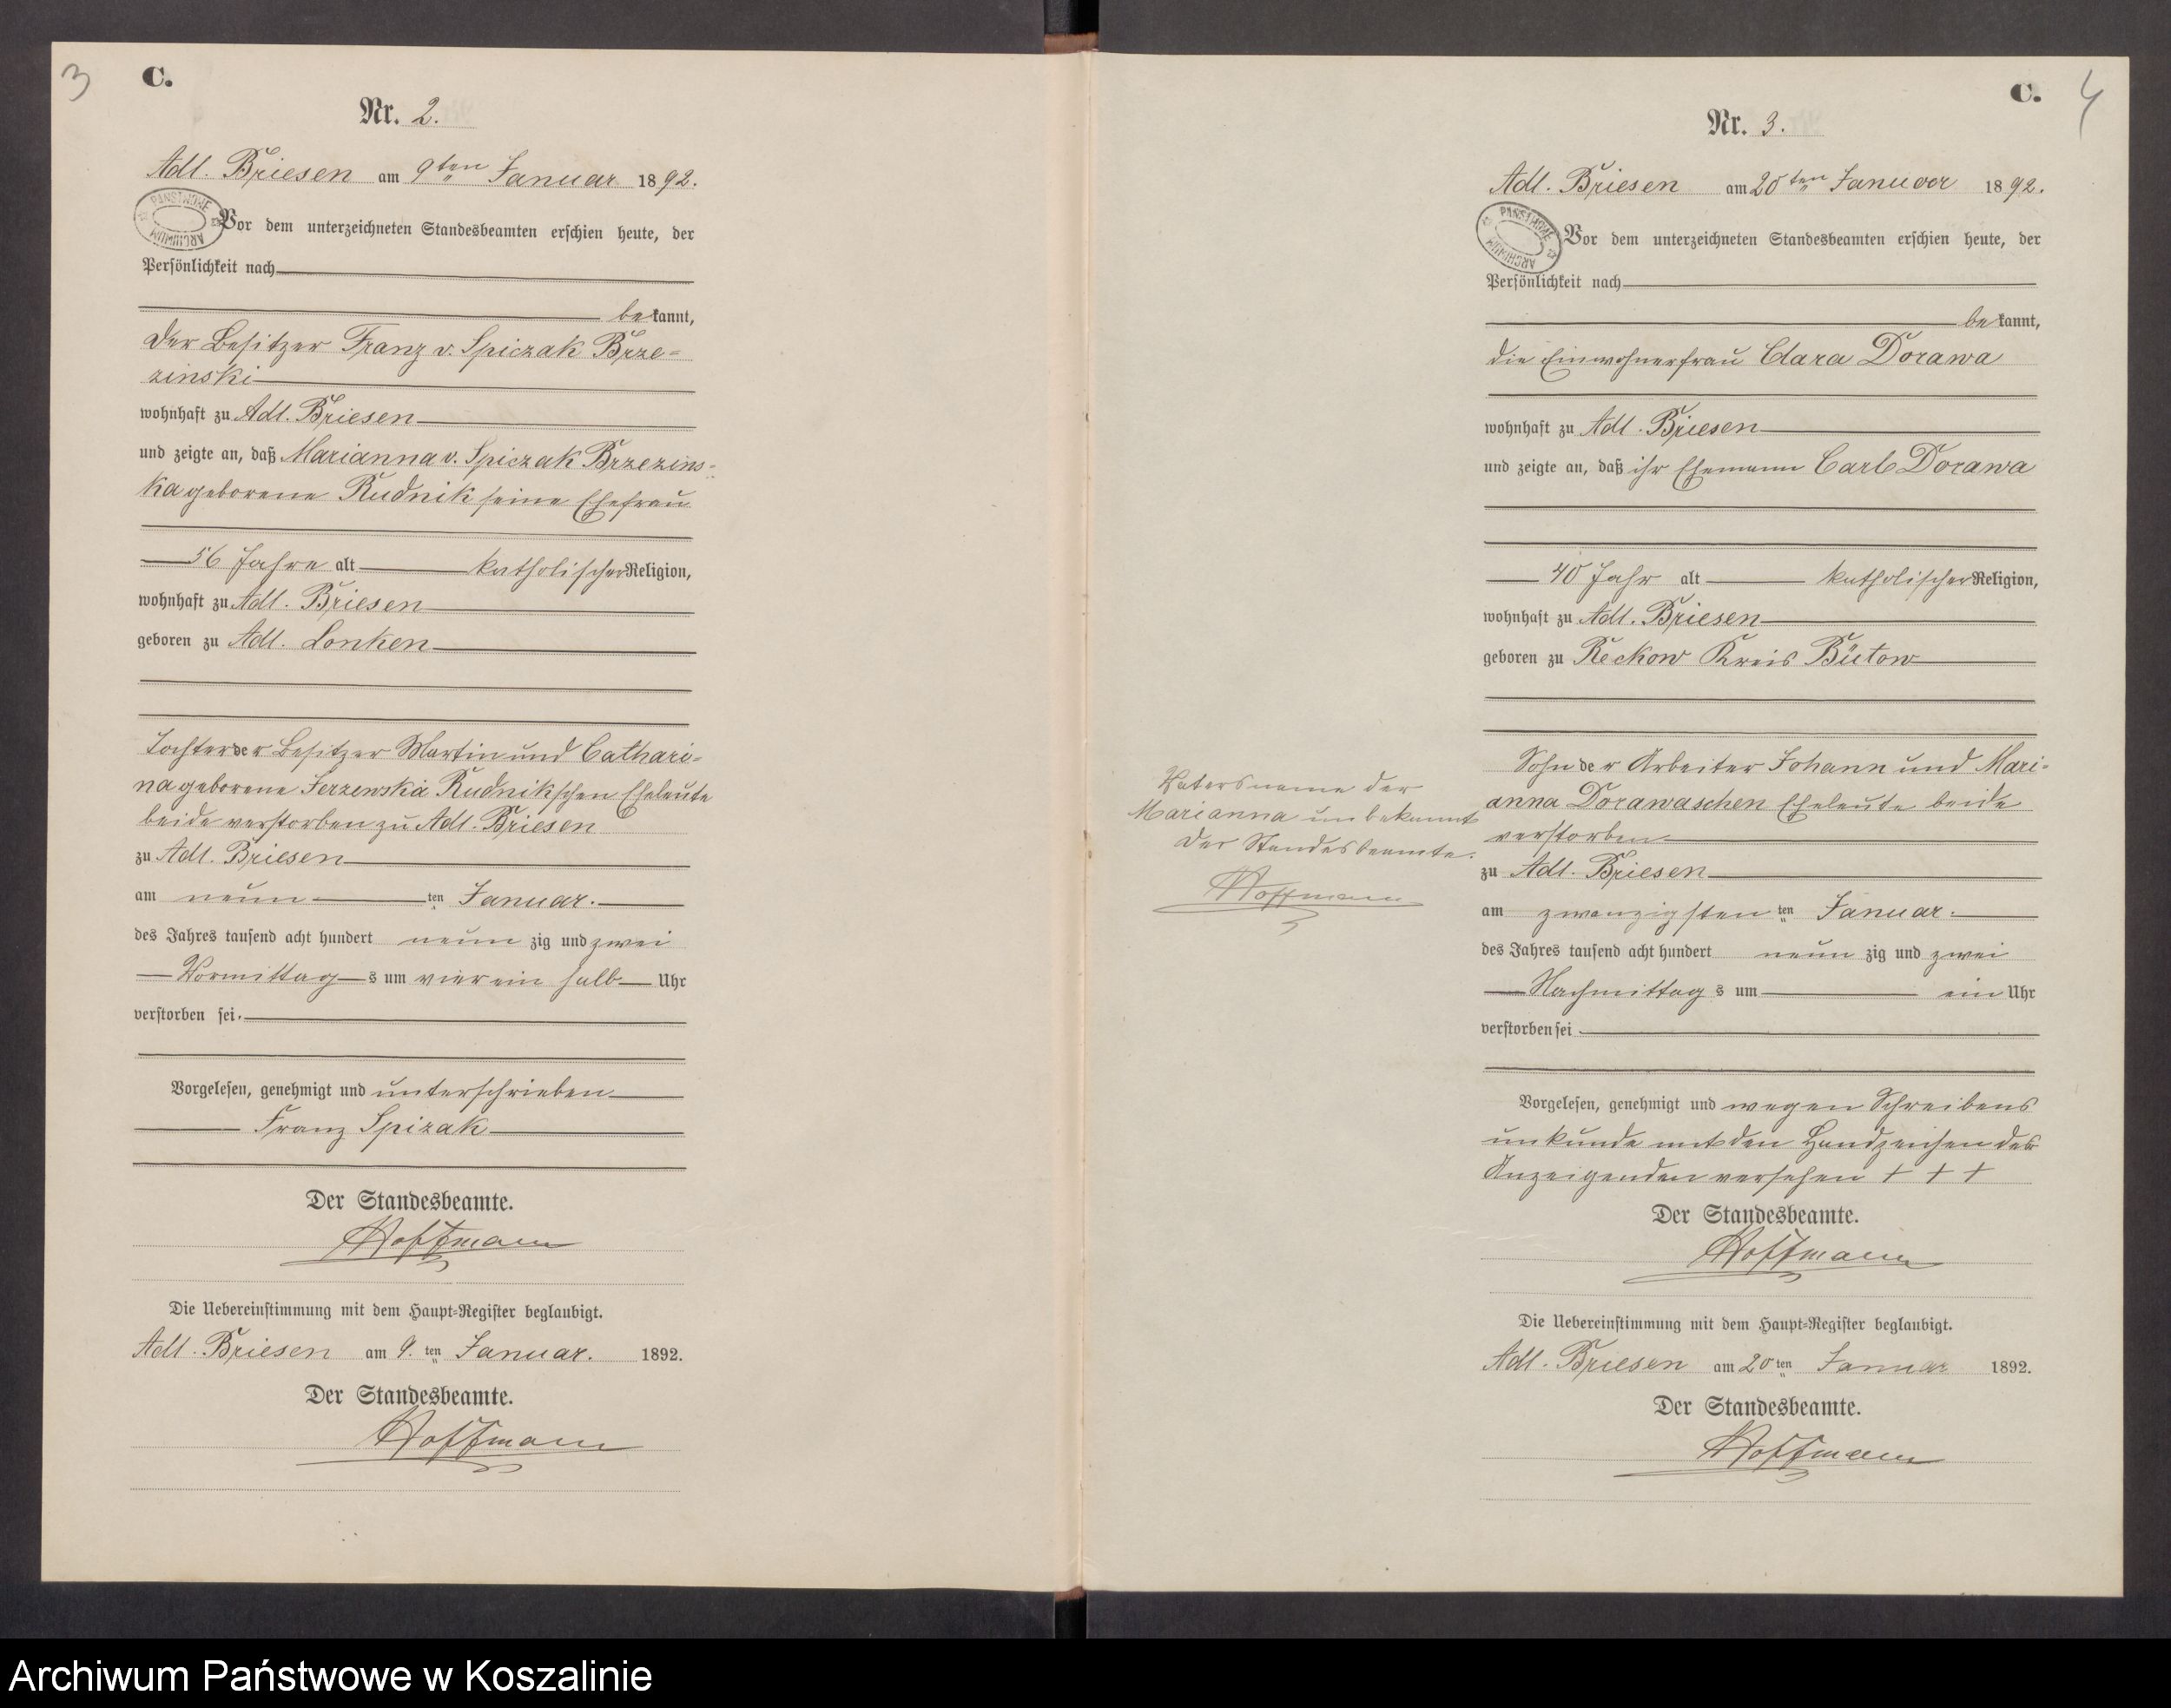 3
C.
Nr. 2.
Adl. Briesen am 9ten Januar 1892.
PAŃSTWOWE
ARCHIWUM
Vor dem unterzeichneten Standesbeamten erschien heute, der
Persönlichkeit nach
bekannt,
der Besitzer Franz v. Spiczak Brze-
zinski
wohnhaft zu Adl. Briesen
und zeigte an, daß Marianna v. Spiczak Brzezins-
ka geborene Rudnik seine Ehefrau
56 Jahre alt katholischer Religion,
wohnhaft zu Adl. Briesen
geboren zu Adl. Lonken
Tochter der Besitzer Martin und Cathari-
na geborene Jerzewska Rudnikschen Eheleute
beide verstorben zu Adl. Briesen
zu Adl. Briesen
am neun ten Januar.
des Jahres tausend acht hundert neunzig und zwei
Vormittags um vier ein halb Uhr
verstorben sei.
Vorgelesen, genehmigt und unterschrieben
Franz Spizak
Der Standesbeamte.
Hoffmann
Die Uebereinstimmung mit dem Haupt-Register beglaubigt.
Adl. Briesen am 9. ten Januar. 1892.
Der Standesbeamte.
Hoffmann
C.
4
Nr. 3.
Adl. Briesen am 20ten Januar 1892.
PAŃSTWOWE
ARCHIWUM
Vor dem unterzeichneten Standesbeamten erschien heute, der
Persönlichkeit nach
bekannt,
die Einwohnerfrau Clara Dorawa
wohnhaft zu Adl. Briesen
und zeigte an, daß ihr Ehemann Carl Dorawa
40 Jahr alt katholischer Religion,
wohnhaft zu Adl. Briesen
geboren zu Reckow Kreis Bütow
Sohn der Arbeiter Johann und Mari-
anna Dorawaschen Eheleute beide
verstorben
zu Adl. Briesen
am zwanzigsten ten Januar.
des Jahres tausend acht hundert neunzig und zwei
Nachmittags um ein Uhr
verstorben sei
Vorgelesen, genehmigt und wegen Schreibens
unkunde mit den Handzeichen des
Anzeigenden versehen + + +
Der Standesbeamte.
Hoffmann
Die Uebereinstimmung mit dem Haupt-Register beglaubigt.
Adl. Briesen am 20 ten Januar 1892.
Der Standesbeamte.
Hoffmann
Vatersname der
Marianna unbekannt
Der Standesbeamte.
Hoffmann
Archiwum Państwowe w Koszalinie